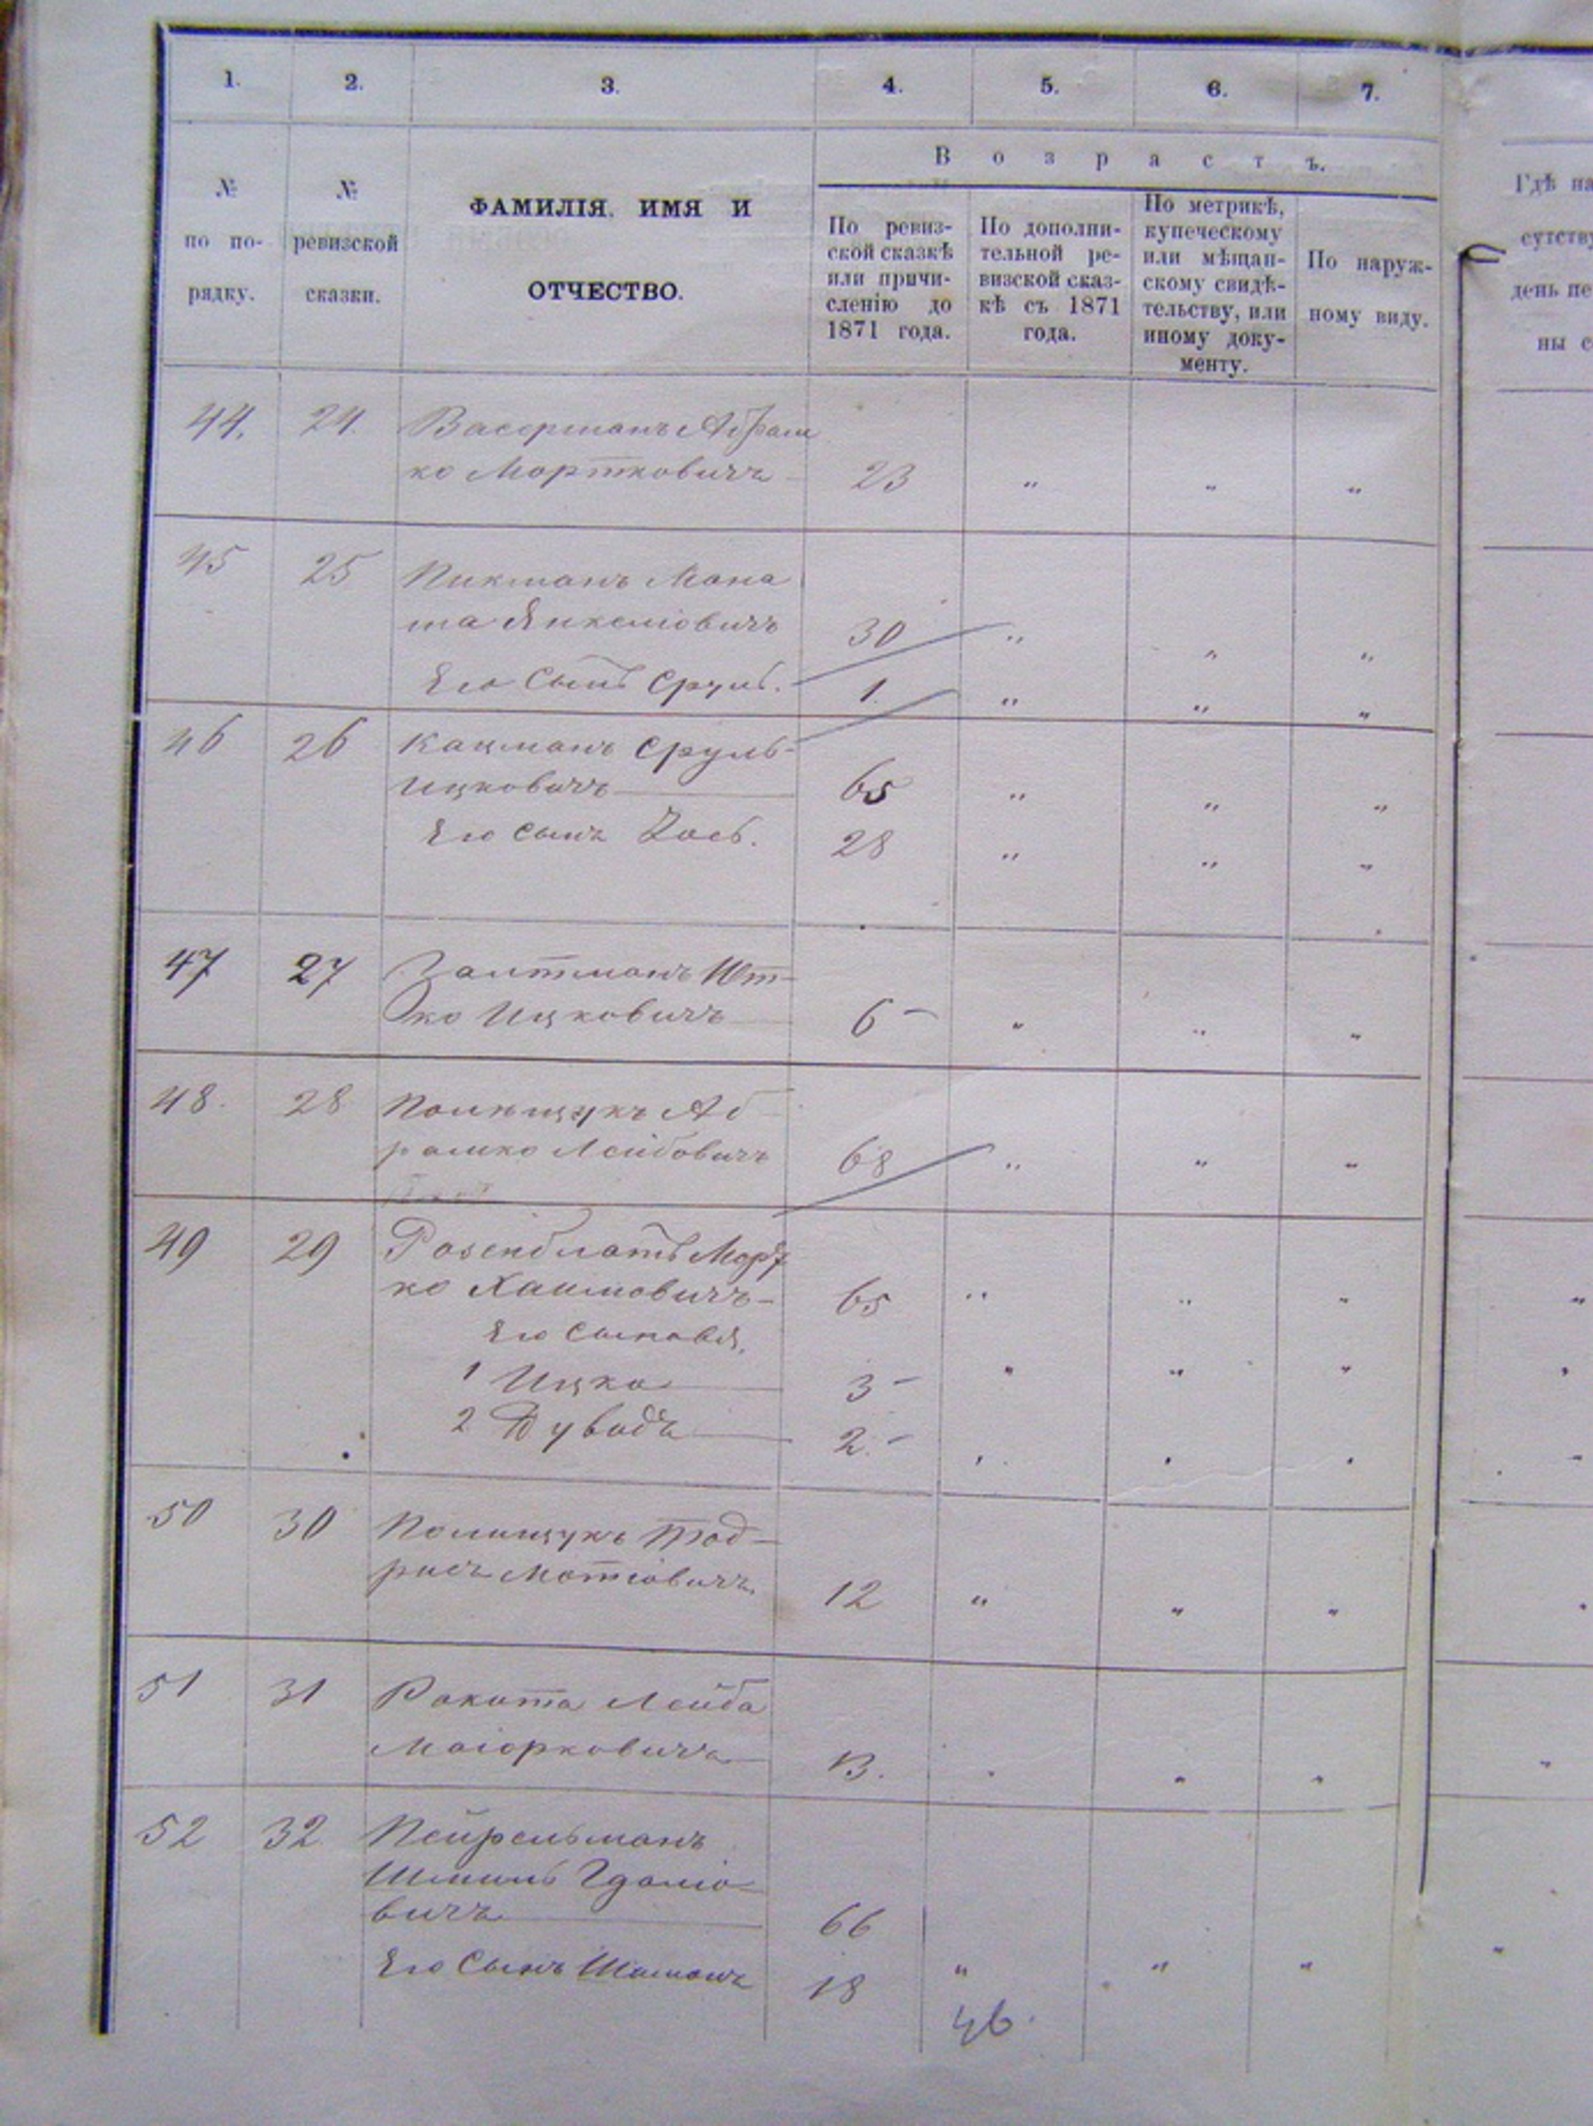 1. 2. 3. 4. 5. 6. 7.
№ по по-
рядку.
№
ревизской
сказки.
ФАМИЛІЯ, ИМЯ И
ОТЧЕСТВО.
Возрастъ.
По ревиз-
ской сказкѣ
или причи-
сленію до
1871 года.
По дополни-
тельной ре-
визской сказ-
кѣ съ 1871
года.
По метрикѣ,
купеческому
или мѣщан-
скому свидѣ-
тельству, или
иному доку-
менту.
По наруж-
ному виду.
Гдѣ на
сутству
день пе
ны с
44. 24. Васерманъ Абрам
ко Мортковичъ 23 " " "
45 25 Пикманъ Мона
ша Янкеліовичъ 30 " " "
Его Сынъ Сруль. 1 " " "
46 26 Кацманъ Сруль-
Ицковичъ 65 " " "
Его сынъ Іось. 28 " " "
47 27 Залтманъ Ют-
ко Ицковичъ 6 - " " "
48. 28 Полищукъ Аб
рамко Лейбовичъ 68 " " "
49 29 Розенблатъ Морт
ко Хаимовичъ - 65 " " " "
Его сыновья,
1 Ицко 3 - " " "
2 Дувидъ 2. -
50 30 Полищукъ Тод-
рисъ Мотіовичъ 12 " " "
51 31 Рокита Лейба
Маіорковичъ 13. " "
52 32 Пейрельманъ
Шмиль Гдаліо-
вичъ 66
Его Сынъ Шаманъ 18 " " "
46.